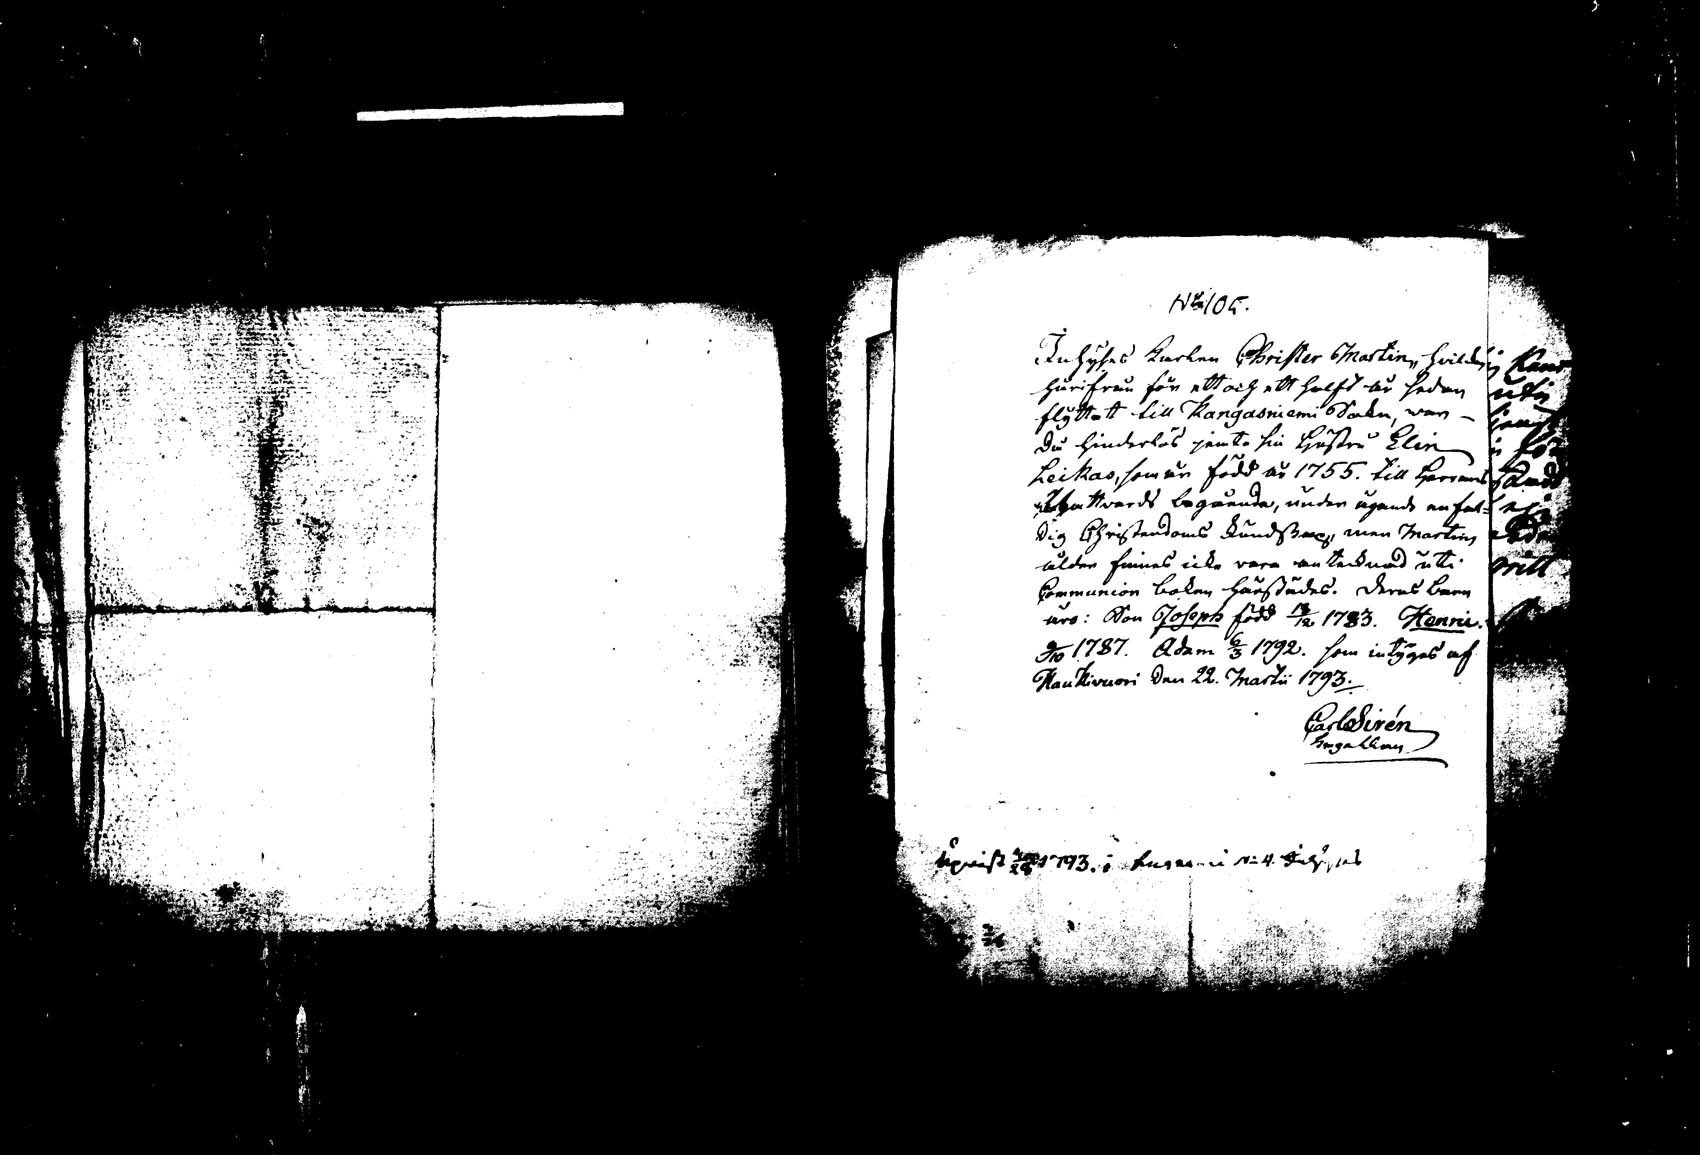 No 105.
Inhyses Karlen Christer Martin, hvilken
härifrån för ett och ett halft år sedan
flyttat till Kangasniemi Sokn, var-
du hinderlös jemte sin Hustru Elin
Leikas, som är född år 1755. till Herrans
Nattvards begående, under ägande enfal-
dig Christendoms kundskap, men Martins
ålder finnes icke vara antecknad uti
Communion boken härstädes. Deras barn
äro: Son Joseph född 18/12 1783. Henric
2/10 1787. Adam 6/3 1792. som intyges af
Haukivuori den 22. Martii 1793.
Carl Sirén
1793. i N:o 4. Inhyses